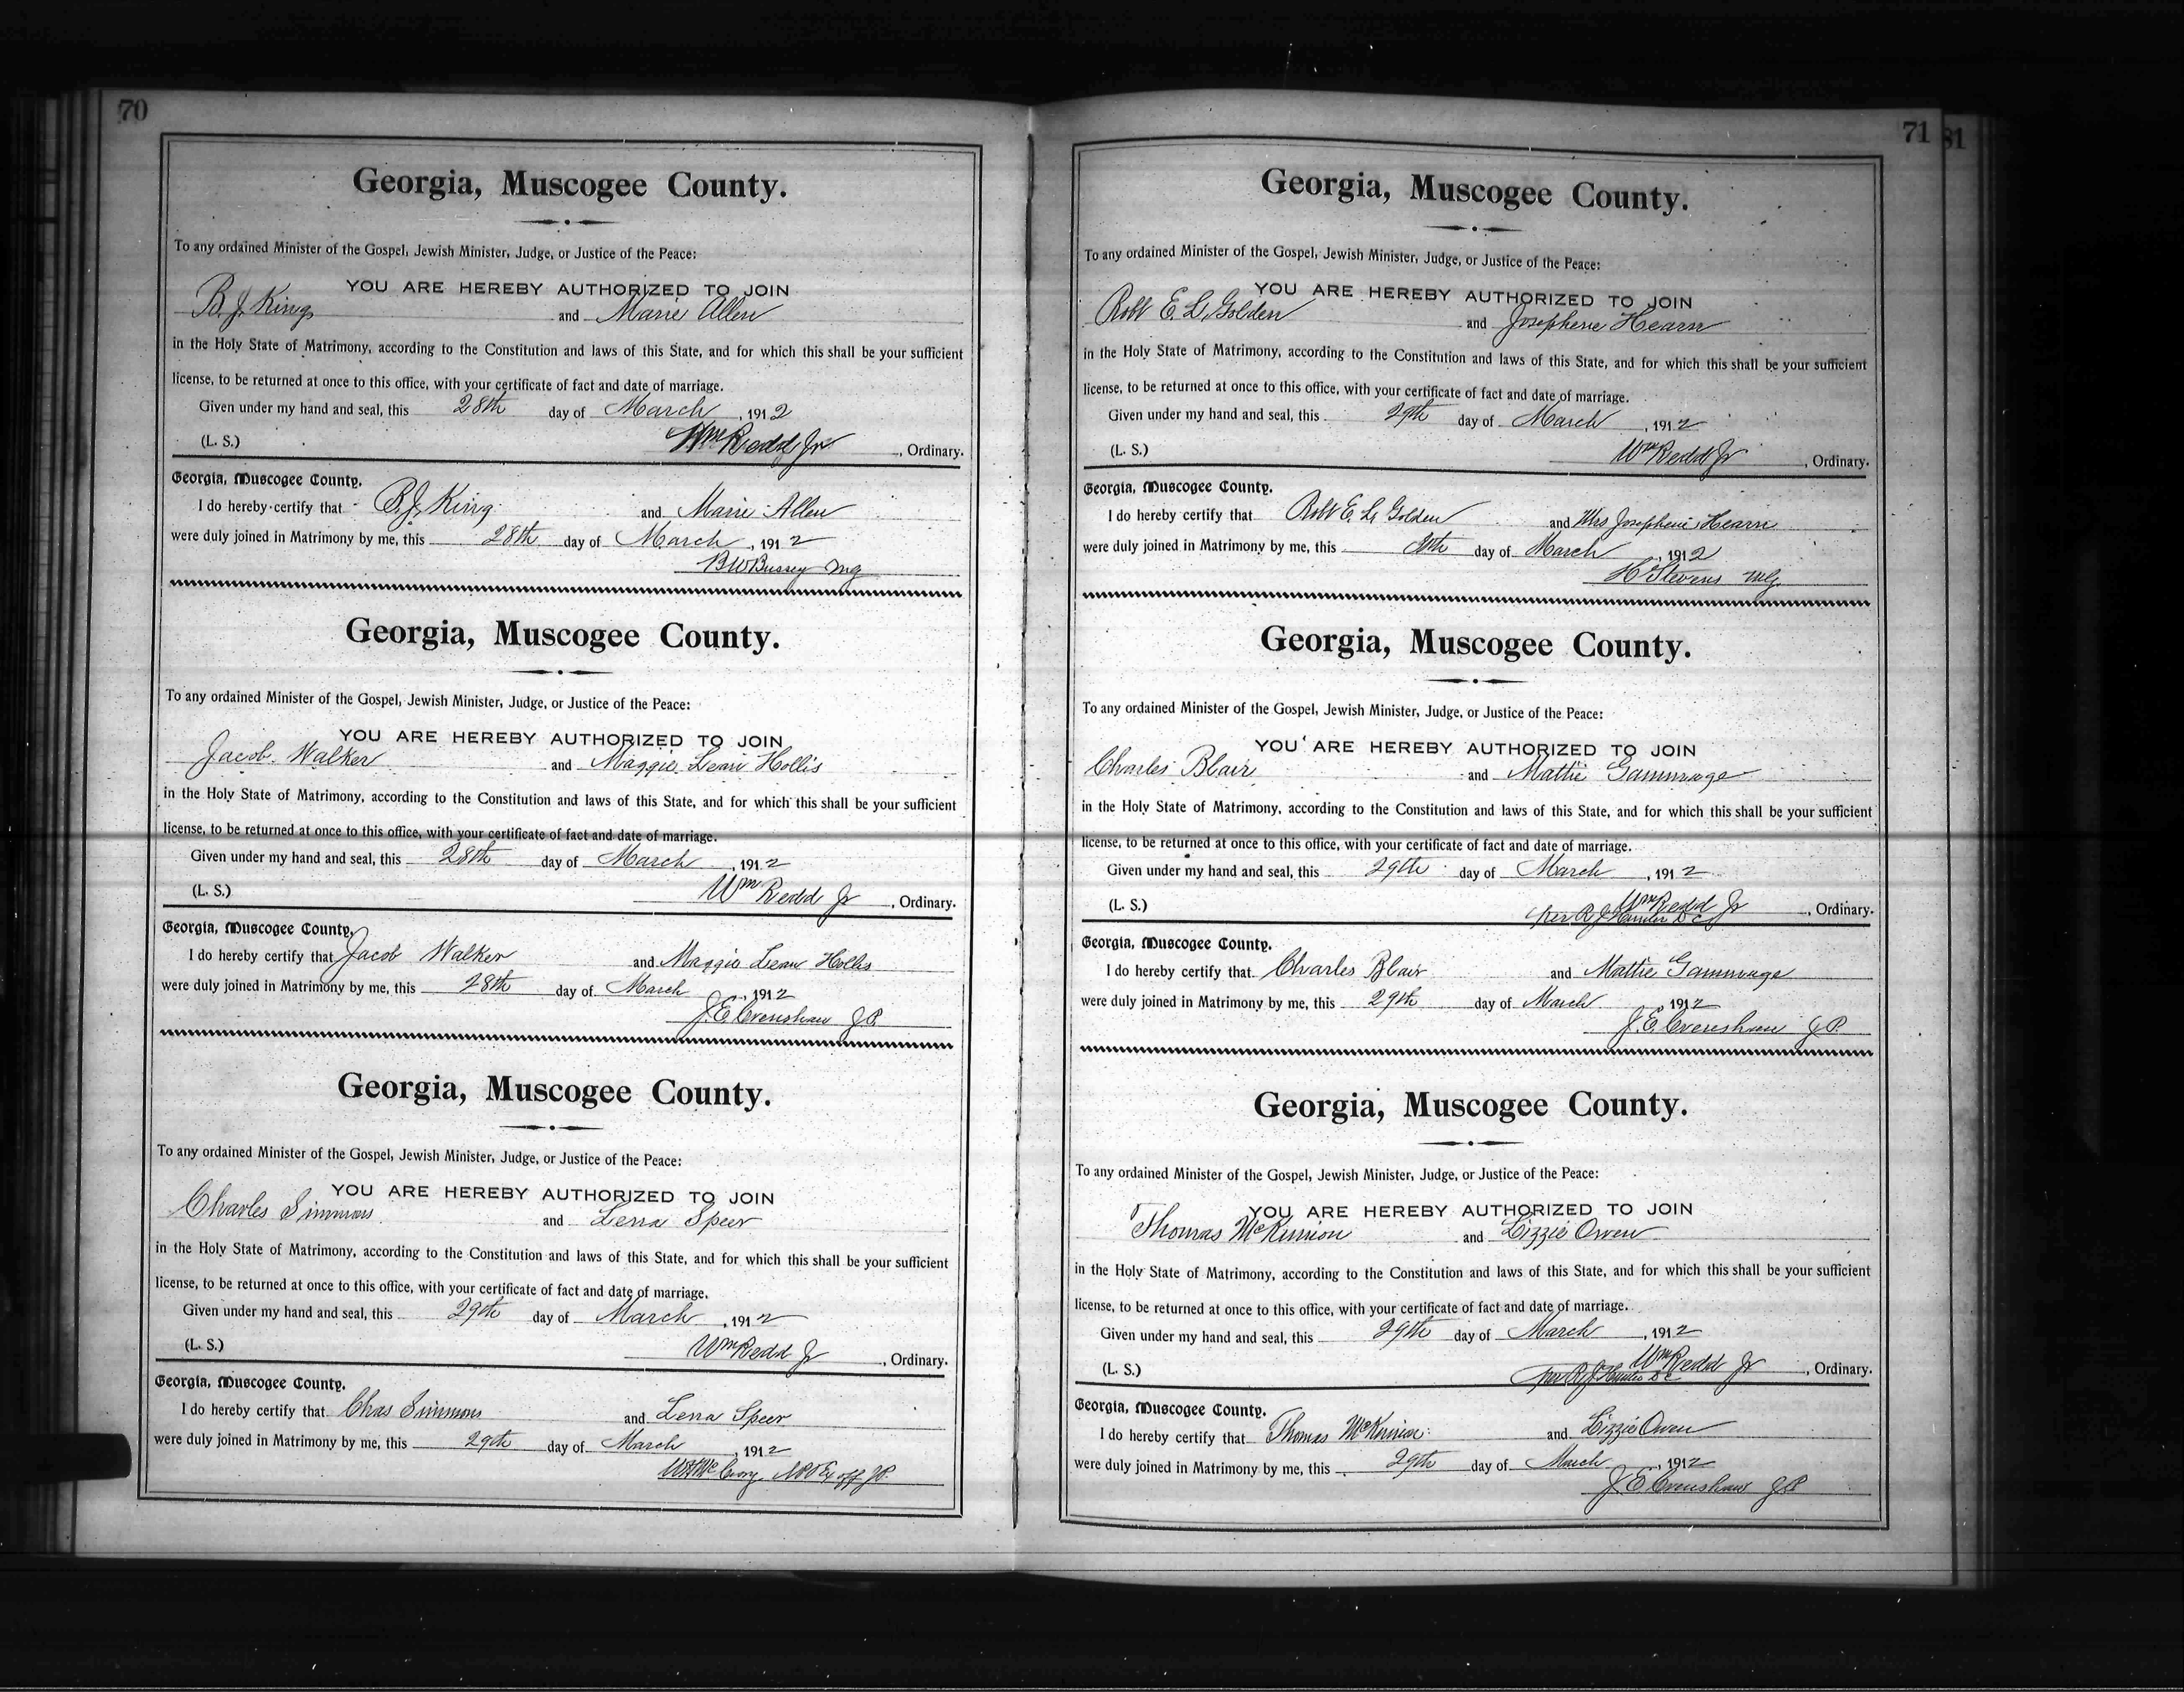 70
Georgia, Muscogee County.
To any ordained Minister of the Gospel, Jewish Minister, Judge, or Justice of the Peace:
YOU ARE HEREBY AUTHORIZED TO JOIN
B. J. King and Marie Allen
in the Holy State of Matrimony, according to the Constitution and laws of this State, and for which this shall be your sufficient
license, to be returned at once to this office, with your certificate of fact and date of marriage.
Given under my hand and seal, this 28th day of March, 1912
(L. S.) Wm Redd Jr, Ordinary.
Georgia, Muscogee County.
I do hereby certify that B. J. King and Marie Allen
were duly joined in Matrimony by me, this 28th day of March, 1912
B W Bussey Mg
Georgia, Muscogee County.
To any ordained Minister of the Gospel, Jewish Minister, Judge, or Justice of the Peace:
YOU ARE HEREBY AUTHORIZED TO JOIN
Jacob Walker and Maggie Hollis
in the Holy State of Matrimony, according to the Constitution and laws of this State, and for which this shall be your sufficient
license, to be returned at once to this office, with your certificate of fact and date of marriage.
Given under my hand and seal, this 28th day of March, 1912
(L. S.) Wm Redd Jr, Ordinary.
Georgia, Muscogee County.
I do hereby certify that Jacob Walker and Maggie Hollis
were duly joined in Matrimony by me, this 28th day of March, 1912
J. E. Crenshaw J P.
Georgia, Muscogee County.
To any ordained Minister of the Gospel, Jewish Minister, Judge, or Justice of the Peace:
YOU ARE HEREBY AUTHORIZED TO JOIN
Charles Simmons and Lena Speer
in the Holy State of Matrimony, according to the Constitution and laws of this State, and for which this shall be your sufficient
license, to be returned at once to this office, with your certificate of fact and date of marriage.
Given under my hand and seal, this 29th day of March, 1912
(L. S.) Wm Redd Jr, Ordinary.
Georgia, Muscogee County.
I do hereby certify that Chas Simmons and Lena Speer
were duly joined in Matrimony by me, this 29th day of March, 1912
Ex off J P.
71 81
Georgia, Muscogee County.
To any ordained Minister of the Gospel, Jewish Minister, Judge, or Justice of the Peace:
YOU ARE HEREBY AUTHORIZED TO JOIN
Robt E. L. Golden and Josephene Hearn
in the Holy State of Matrimony, according to the Constitution and laws of this State, and for which this shall be your sufficient
license, to be returned at once to this office, with your certificate of fact and date of marriage.
Given under my hand and seal, this 29th day of March, 1912
(L. S.) Wm Redd Jr, Ordinary.
Georgia, Muscogee County.
I do hereby certify that Robt E. L. Golden and Mrs Josephene Hearn
were duly joined in Matrimony by me, this day of March, 1912
H Stevens Mg.
Georgia, Muscogee County.
To any ordained Minister of the Gospel, Jewish Minister, Judge, or Justice of the Peace:
YOU ARE HEREBY AUTHORIZED TO JOIN
Charles Blair and Mattie Gammage
in the Holy State of Matrimony, according to the Constitution and laws of this State, and for which this shall be your sufficient
license, to be returned at once to this office, with your certificate of fact and date of marriage.
Given under my hand and seal, this 29th day of March, 1912
(L. S.) Wm Redd Jr, Ordinary.
per R J Hunter D C
Georgia, Muscogee County.
I do hereby certify that Charles Blair and Mattie Gammage
were duly joined in Matrimony by me, this 29th day of March, 1912
J. E. Crenshaw J P.
Georgia, Muscogee County.
To any ordained Minister of the Gospel, Jewish Minister, Judge, or Justice of the Peace:
YOU ARE HEREBY AUTHORIZED TO JOIN
Thomas McKinnion and Lizzie Owen
in the Holy State of Matrimony, according to the Constitution and laws of this State, and for which this shall be your sufficient
license, to be returned at once to this office, with your certificate of fact and date of marriage.
Given under my hand and seal, this 29th day of March, 1912
(L. S.) Wm Redd Jr, Ordinary.
per R J Hunter D C
Georgia, Muscogee County.
I do hereby certify that Thomas McKinnion and Lizzie Owen
were duly joined in Matrimony by me, this 29th day of March, 1912
J. E. Crenshaw J P